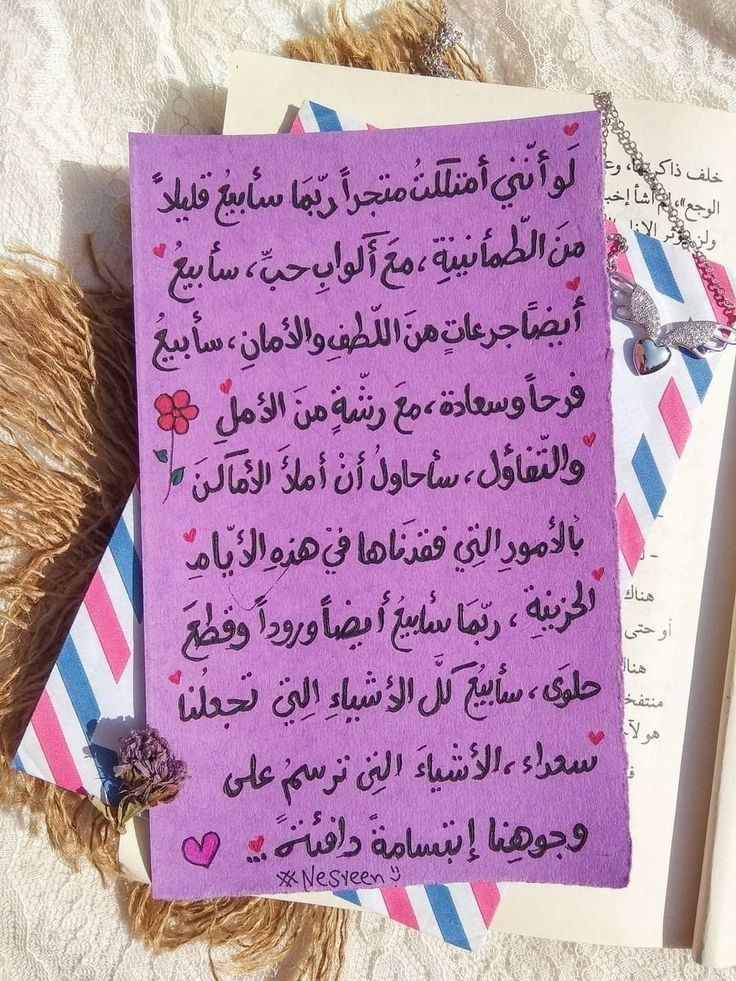 لَو أنّني أمتلكتُ متجراً ربّمَا سأبيعُ قليلاً
منَ الطّمأنينةِ، معَ أكوابِ حبٍّ، سأبيعُ
أيضاً جرعاتٍ منَ اللّطفِ والأمانِ، سأبيعُ
فرحاً وسعادة، معَ رشّةٍ منَ الأملِ
والتّفاؤل، سأحاولُ أنْ أملأَ الأماكنَ
بالأمورِ التِي فقدنَاها فيْ هذهِ الأيّامِ
الحزينةِ، ربّمَا سأبيعُ أيضاً وروداً وقطعَ
حلوَى، سأبيعُ كلَّ الأشياءِ التِي تجعلُنا
سعداء، الأشياءَ التِي ترسمُ على
وجوهنِا إبتسامةً دافئةً ...
Nesreen
خلف ذاكرتها، وع
الوجع»، لم أشأ إخ
هناك
أو حتى
هناك
منتفخ
هو لأ